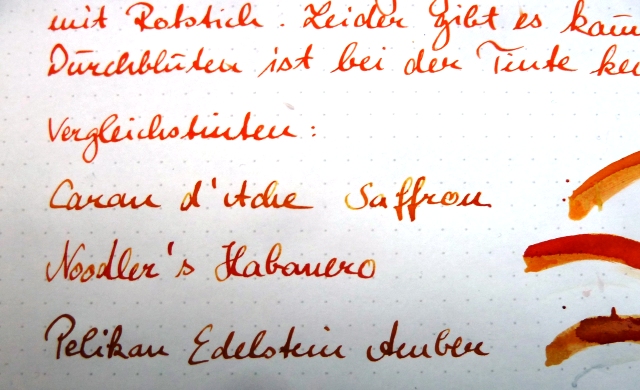 mit Rotstich. Leider gibt es kaum
Durchbluten ist bei der Tinte
Vergleichstinten:
Caran d'Ache Saffron
Noodler's Habanero
Pelikan Edelstein Amber